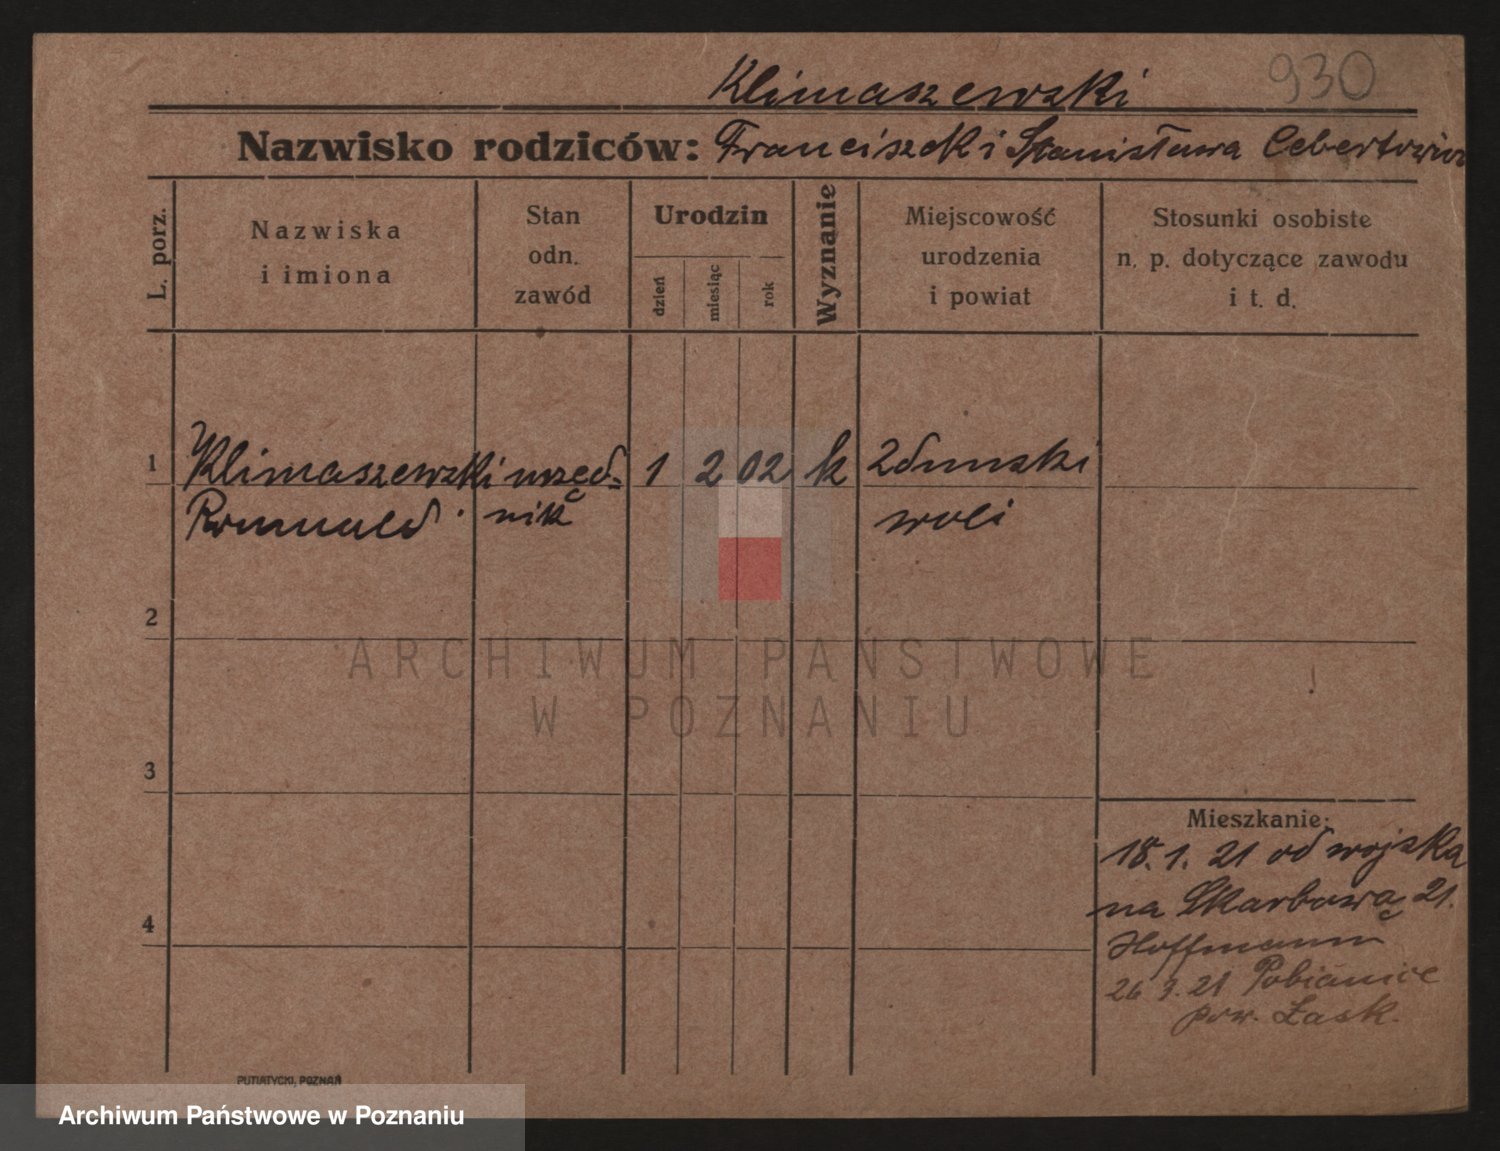 930
Klimaszewski
Nazwisko rodziców: Franciszek i Stanisława Cebertowicz
L. porz.
Nazwiska
i imiona
Stan
odn.
zawód
Urodzin
dzień
miesiąc
rok
Wyznanie
Miejscowość
urodzenia
i powiat
Stosunki osobiste
n. p. dotyczące zawodu
i t. d.
1 Klimaszewski urzęd= 1 2 02 k Zdunski
Romuald nik woli
2
ARCHIWUM PAŃSTWOWE
W POZNANIU
3
Mieszkanie:
18.1.21 od wojska
na Skarbową 21.
4
Hoffmann
26 3.21 Pabianice
pow. Łask.
PUTIATYCKI, POZNAŃ
Archiwum Państwowe w Poznaniu